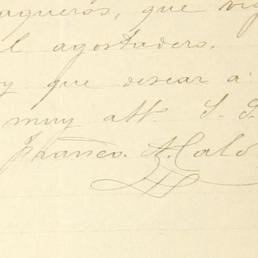 aqueros, que vig
l agostadero.
y que desear a
muy att. S. S.
Franco. A. Calo